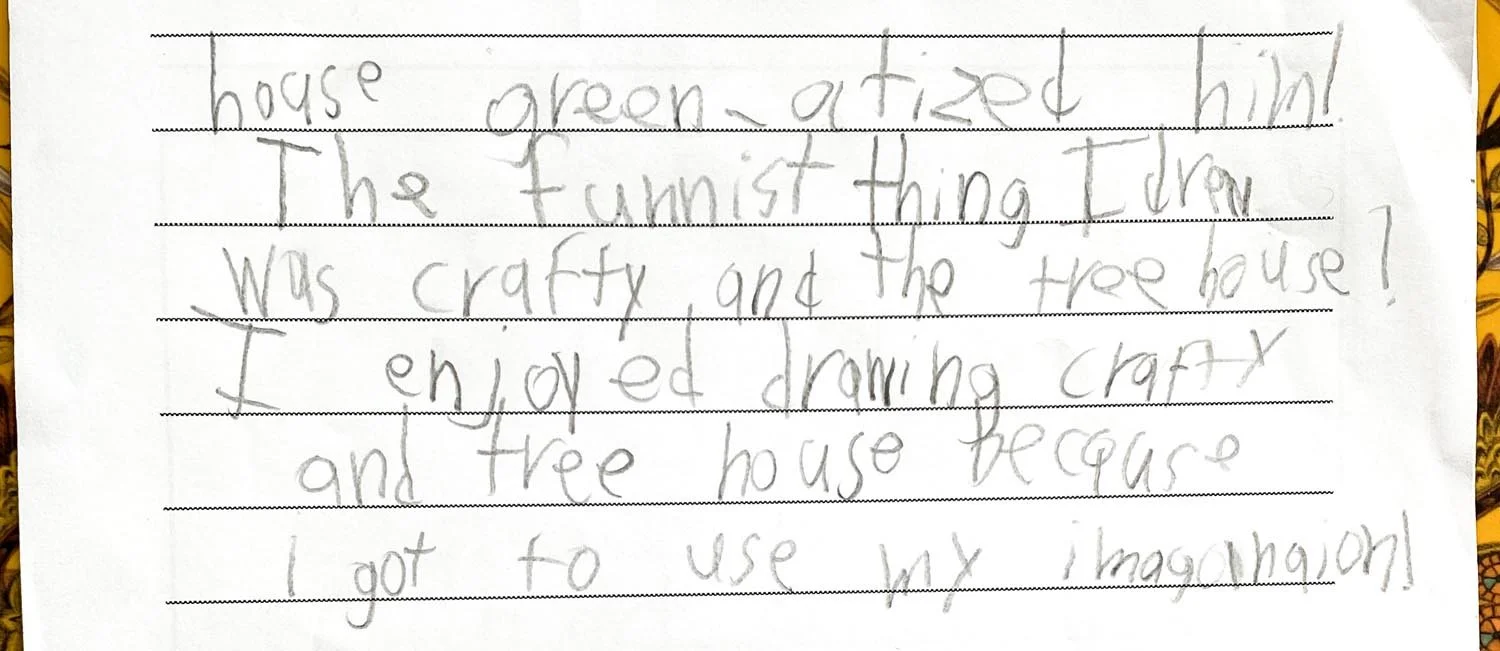 house green-atized him!
The funnist thing I drew
was crafty, and the tree house!
I enjoyed drawing crafty
and tree house because
I got to use my imaganaion!